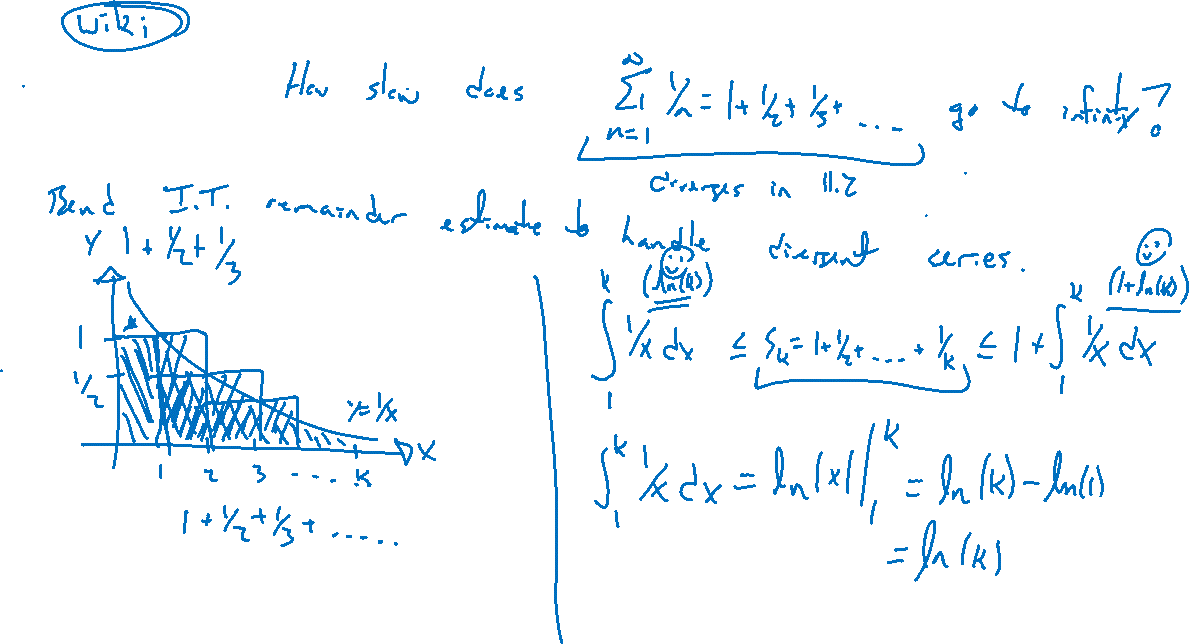 Wiki
How slow does ∑_{n=1}^{∞} 1/n = 1 + 1/2 + 1/3 + ... go to infinity?
diverges in 11.2
Bend I.T. remainder estimate to handle divergent series.
y 1 + 1/2 + 1/3
1
1/2
y = 1/x
1 2 3 ... k x
1 + 1/2 + 1/3 + .....
(ln(k)) (1+ln(k))
∫_1^k 1/x dx ≤ S_k = 1 + 1/2 + ... + 1/k ≤ 1 + ∫_1^k 1/x dx
∫_1^k 1/x dx = ln|x| |_1^k = ln(k) - ln(1)
= ln(k)